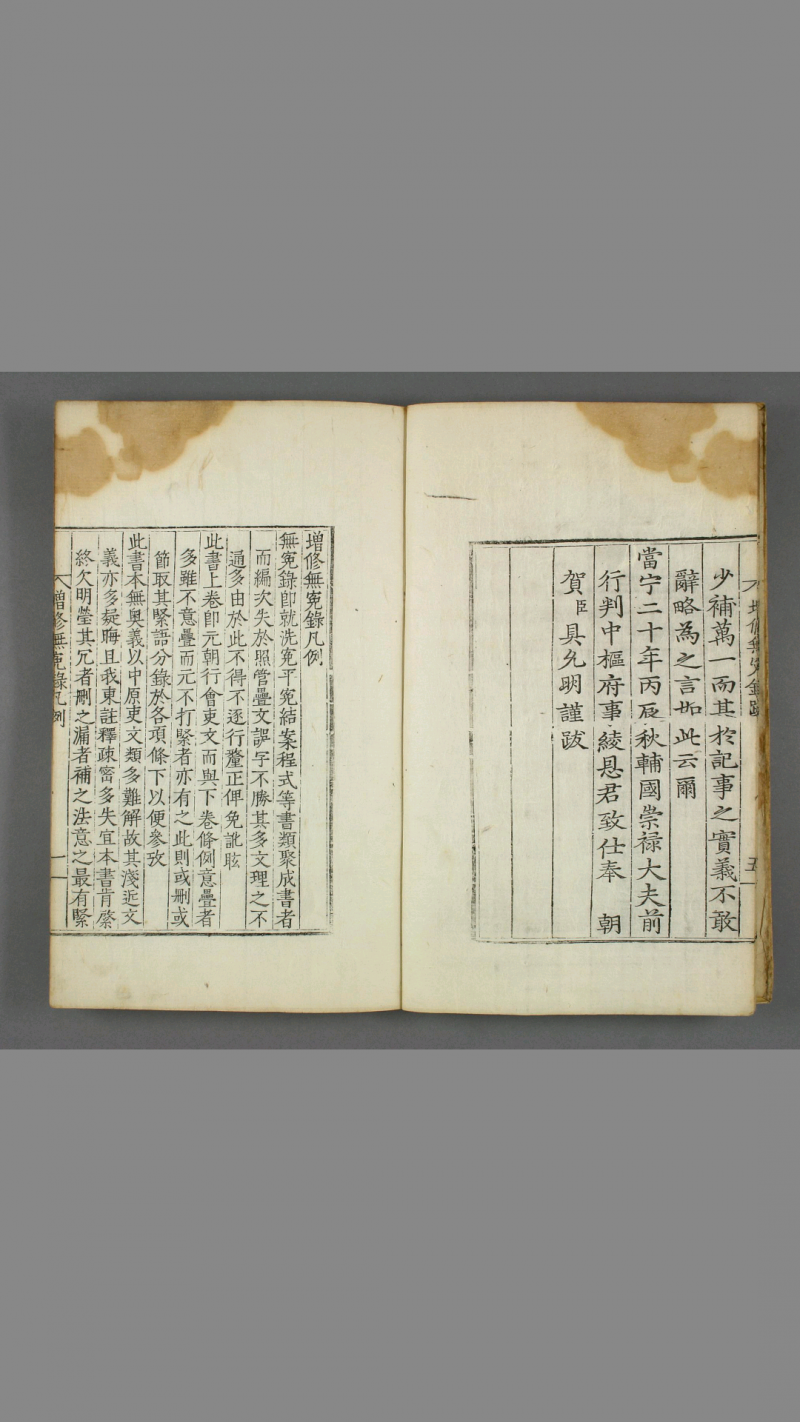 增修無寃錄跋
五
少補萬一而其於記事之實義不敢
辭略為之言如此云爾
當宁二十年丙辰秋輔國崇祿大夫前
行判中樞府事綾恩君致仕奉 朝
賀臣具允明謹跋
增修無寃錄凡例
無寃錄卽就洗寃平寃結案程式等書類聚成書者
而編次失於照管疊文誤字不勝其多文理之不
通多由於此不得不逐行釐正俾免訛眩
此書上卷卽元朝行會吏文而與下卷條例意疊者
多雖不意疊而元不打緊者亦有之此則或刪或
節取其緊語分錄於各項條下以便參攷
此書本無奧義以中原吏文類多難解故其淺近文
義亦多疑晦且我東註釋疎宻多失宜本書肯綮
終欠明瑩其冗者刪之漏者補之法意之最有緊
增修無寃錄凡例
一